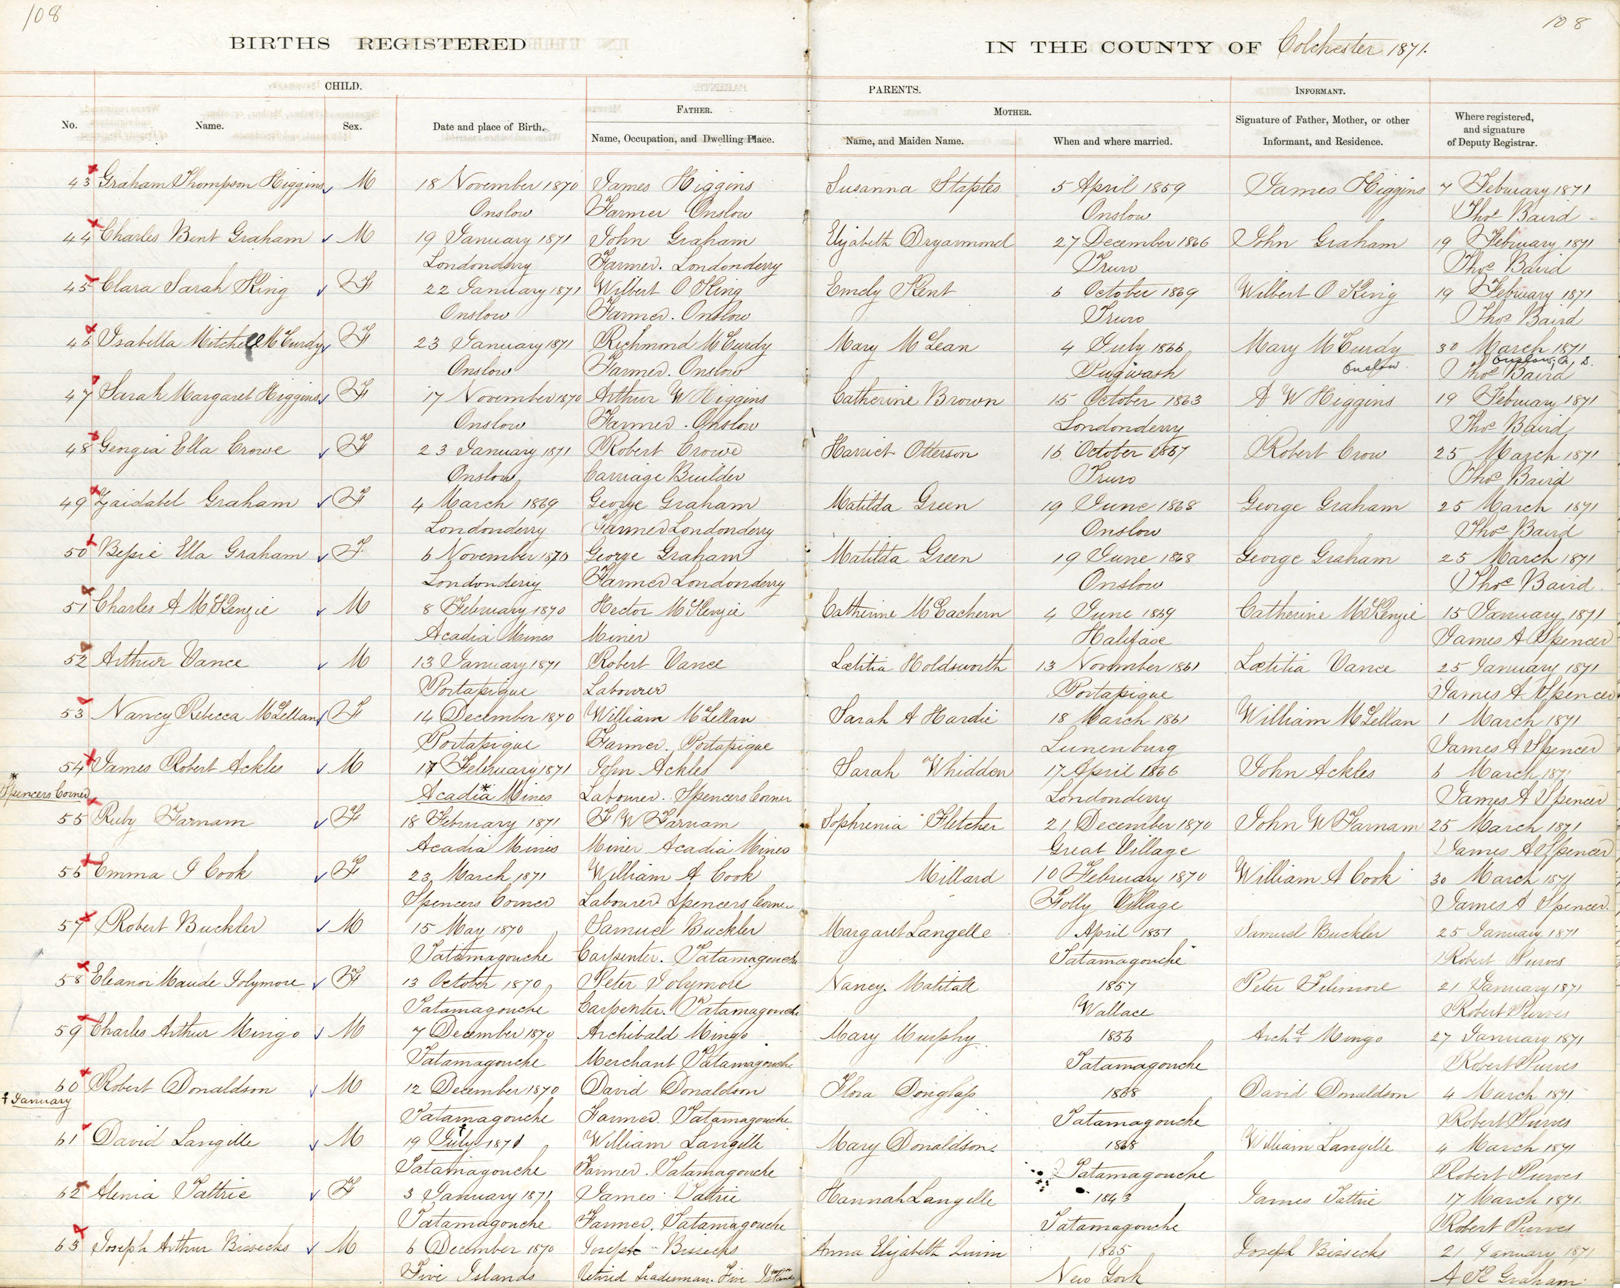 108
108
BIRTHS REGISTERED
IN THE COUNTY OF Colchester 1871.
CHILD.
PARENTS.
INFORMANT.
FATHER.
MOTHER.
No.
Name.
Sex.
Date and place of Birth.
Name, Occupation, and Dwelling Place.
Name, and Maiden Name.
When and where married.
Signature of Father, Mother, or other
Informant, and Residence.
Where registered,
and signature
of Deputy Registrar.
43 Graham Thompson Higgins M 18 November 1870 James Higgins Susanna Staples 5 April 1859 James Higgins 7 February 1871
Onslow Farmer Onslow Onslow Thos Baird
44 Charles Bent Graham M 19 January 1871 John Graham Elizabeth Dryarmond 27 December 1866 John Graham 19 February 1871
Londonderry Farmer. Londonderry Truro Thos Baird
45 Clara Sarah King F 22 January 1871 Wilbert O King Emely Kent 6 October 1869 Wilbert O King 19 February 1871
Onslow Farmer. Onslow Truro Thos Baird
46 Isabella Mitchell McCurdy F 23 January 1871 Richmond McCurdy Mary McLean 4 July 1866 Mary McCurdy 30 March 1871
Onslow Farmer. Onslow Pugwash Onslow Thos Baird
47 Sarah Margaret Higgins F 17 November 1870 Arthur W Higgins Catherine Brown 15 October 1863 A W Higgins 19 February 1871
Onslow Farmer. Onslow Londonderry Thos Baird
48 Georgia Ella Crowe F 23 January 1871 Robert Crowe Harriet Otterson 16 October 1867 Robert Crow 25 March 1871
Onslow Carriage Builder Truro Thos Baird
49 Zaidabel Graham F 4 March 1869 George Graham Matilda Green 19 June 1868 George Graham 25 March 1871
Londonderry Farmer Londonderry Onslow Thos Baird
50 Bessie Ella Graham F 6 November 1870 George Graham Matilda Green 19 June 1868 George Graham 25 March 1871
Londonderry Farmer Londonderry Onslow Thos Baird
51 Charles A McKenzie M 8 February 1870 Hector McKenzie Catherine McEachern 4 June 1869 Catherine McKenzie 15 January 1871
Acadia Mines Miner Halifax James A Spencer
52 Arthur Vance M 13 January 1871 Robert Vance Lœtitia Holdsworth 13 November 1861 Lœtitia Vance 25 January 1871
Portapique Labourer Portapique James A Spencer
53 Nancy Rebecca McLellan F 14 December 1870 William McLellan Sarah A Hardie 18 March 1861 William McLellan 1 March 1871
Portapique Farmer. Portapique Lunenburg James A Spencer
54 James Robert Ackles M 17 February 1871 John Ackles Sarah Whidden 17 April 1866 John Ackles 6 March 1871
* Spencers Corner Acadia* Mines Labourer. Spencers Corner Londonderry James A Spencer
55 Ruby Farnam F 18 February 1871 F W Farnam Sophrenia Fletcher 21 December 1870 John W Farnam 25 March 1871
Acadia Mines Miner Acadia Mines Great Village James A Spencer
56 Emma J Cook F 23 March 1871 William A Cook Millard 10 February 1870 William A Cook 30 March 1871
Spencers Corner Labourer Spencers Corner Folly Village James A Spencer
57 Robert Buckler M 15 May 1870 Samuel Buckler Margaret Langelle April 1851 Samuel Buckler 25 January 1871
Tatamagouche Carpenter. Tatamagouche Tatamagouche Robert Purves
58 Eleanor Maude Tolymore F 13 October 1870 Peter Tolymore Nancy Matitall 1857 Peter Filimore 21 January 1871
Tatamagouche Carpenter. Tatamagouche Wallace Robert Purves
59 Charles Arthur Mingo M 7 December 1870 Archibald Mingo Mary Murphy 1856 Archd Mingo 27 January 1871
Tatamagouche Merchant Tatamagouche Tatamagouche Robert Purves
60 Robert Donaldson M 12 December 1870 David Donaldson Flora Douglass 1868 David Donaldson 4 March 1871
† January Tatamagouche Farmer. Tatamagouche Tatamagouche Robert Purves
61 David Langille M 19 July† 1871 William Langille Mary Donaldson 1868 William Langille 4 March 1871
Tatamagouche Farmer. Tatamagouche Tatamagouche Robert Purves
62 Alenia Tattrie F 3 January 1871 James Tattrie Hannah Langelle 1843 James Tattrie 17 March 1871
Tatamagouche Farmer. Tatamagouche Tatamagouche Robert Purves
63 Joseph Arthur Bissecks M 6 December 1870 Joseph Bissecks Anna Elizabeth Quinn 1865 Joseph Bissecks 21 January 1871
Five Islands Retired Tradesman. Five Islands New York A H Graham